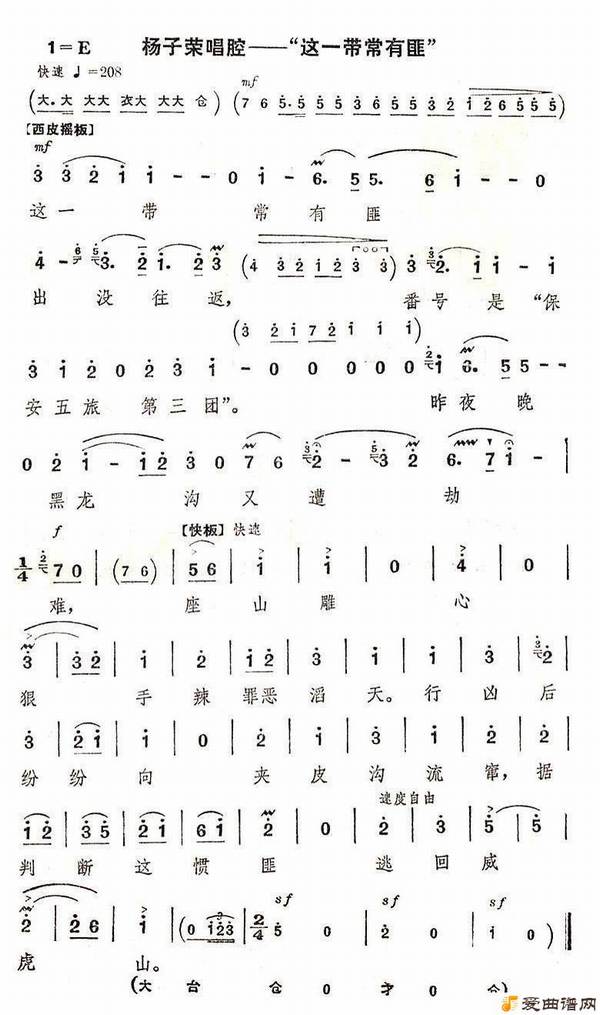 1=E 杨子荣唱腔——“这一带常有匪”
快速 ♩=208
mf
(大.大 大大 衣大 大大 仓)
(7 6 5.5 5 5 3 5 6 5 3 2 3 2 1 2 6 5 5 5)
【西皮摇板】
mf
3 3 2 1 1 - - 0 1 - 6. 5 5. 6 1 - - 0
这一 带 常有匪
4 - 3. 2 1. 2 3 (4 3 2 1 2 3 3) 3 2. 1 1 - 1
出没往返, 番号是“保
(3 2 1 7 2 1 1)
3 1 2 0 2 3 1 - 0 0 0 0 1 6. 5 5 - -
安五旅 第三团”。 昨夜晚
0 2 1 - 1 2 3 0 7 6 2 - 3 2 6. 7 1 -
黑龙 沟又遭 劫
f 【快板】快速
1/4 7 0 | (7 6) | 5 6 | 1 | 1 | 0 | 4 | 0 |
难, 座山雕 心
3 | 3 2 | 1 | 2 | 1 2 | 3 | 1 | 1 | 3 | 3 | 2 |
狠 手辣罪恶滔天。行凶后
3 | 2 1 | 1 | 0 | 2 | 2 | 3 | 1 | 2 | 2 |
纷纷向 夹皮沟流窜,据
速度自由
1 2 | 3 5 | 1 2 | 6 1 | 2 | 0 | 2 | 3 | 5 | 5 |
判断这惯匪 逃回威
sf sf sf
2 | 2 6 | 1 | (0 1 2 3 | 2/4 5 0 | 0 5 | 0 5)
虎 山。
(大 台 仓 0 才 0 仓)
爱曲谱网